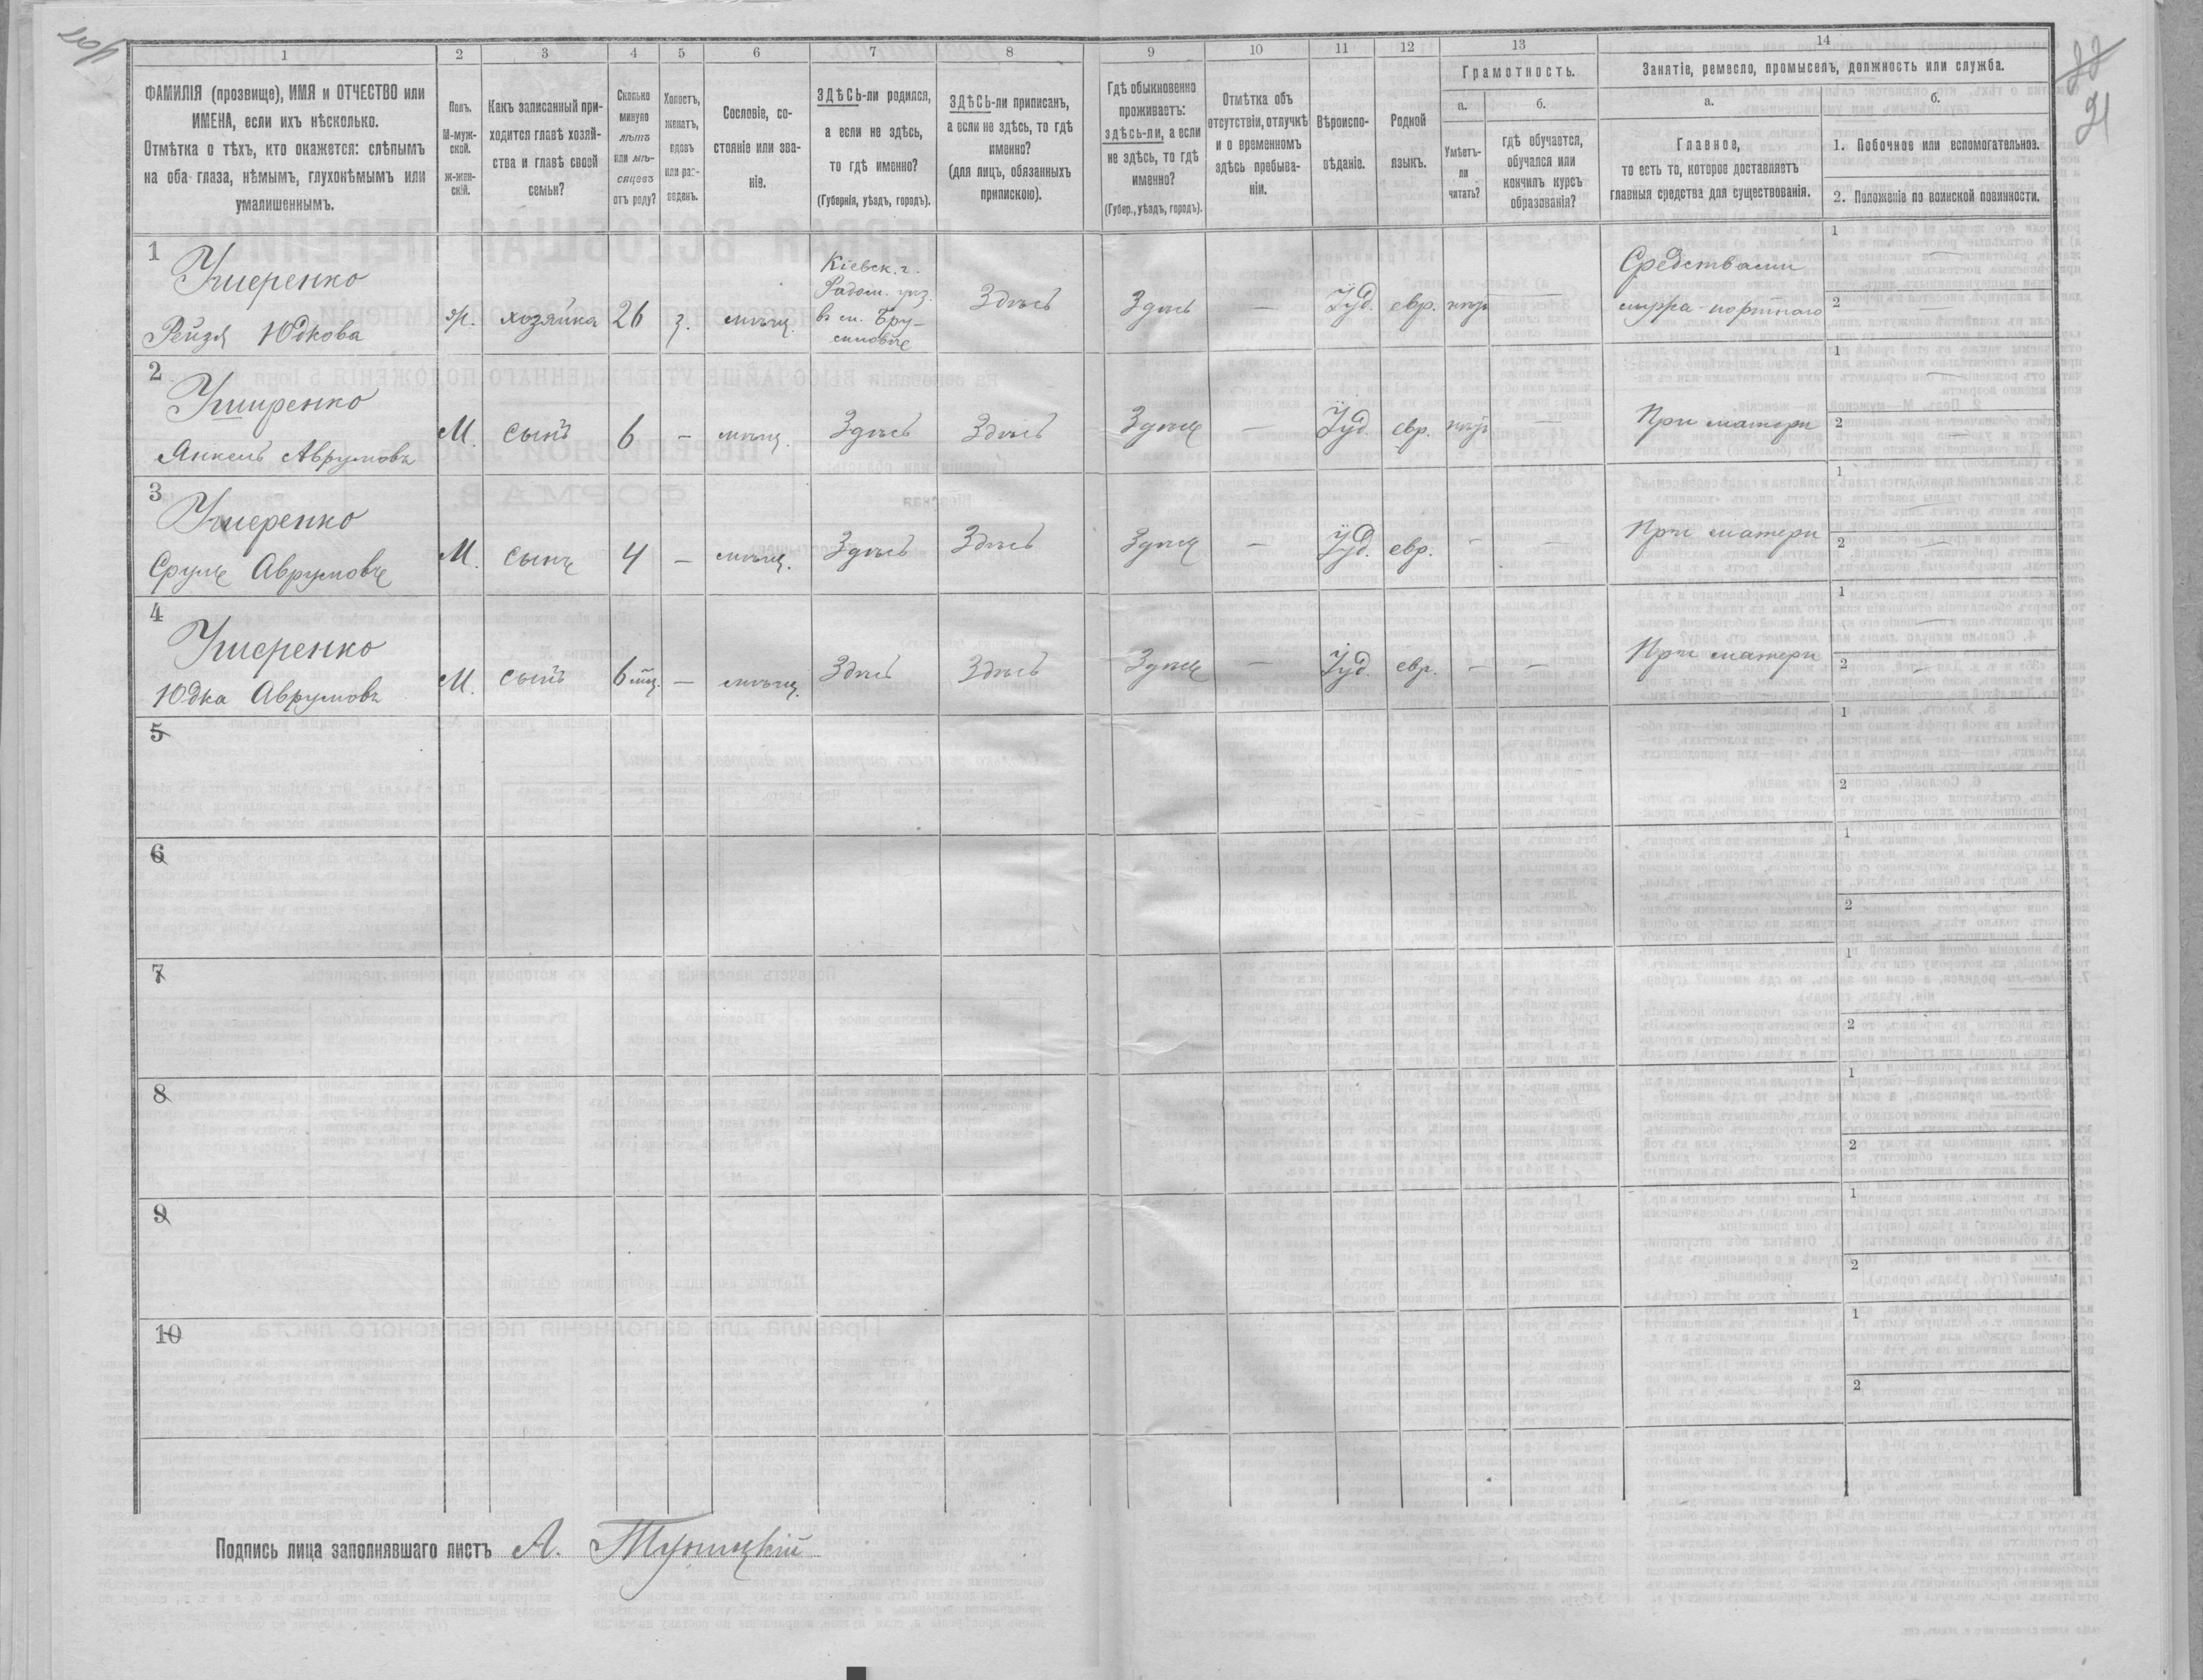 1
2
3
4
5
6
7
8
9
10
11
12
13
14
ФАМИЛІЯ (прозвище), ИМЯ и ОТЧЕСТВО или
ИМЕНА, если ихъ нѣсколько.
Отмѣтка о тѣхъ, кто окажется: слѣпымъ
на оба глаза, нѣмымъ, глухонѣмымъ или
умалишеннымъ.
Полъ.
М-муж-
ской.
ж-жен-
скій.
Какъ записанный при-
ходится главѣ хозяй-
ства и главѣ своей
семьи?
Сколько
минуло
лѣтъ
или мѣ-
сяцевъ
отъ роду?
Холостъ,
женатъ,
вдовъ
или раз-
веденъ.
Сословіе, со-
стояніе или зва-
ніе.
ЗДѢСЬ-ли родился,
а если не здѣсь,
то гдѣ именно?
(Губернія, уѣздъ, городъ).
ЗДѢСЬ-ли приписанъ,
а если не здѣсь, то гдѣ
именно?
(для лицъ, обязанныхъ
припискою).
Гдѣ обыкновенно
проживаетъ:
здѣсь-ли, а если
не здѣсь, то гдѣ
именно?
(Губер., уѣздъ, городъ).
Отмѣтка объ
отсутствіи, отлучкѣ
и о временномъ
здѣсь пребыва-
ніи.
Вѣроиспо-
вѣданіе.
Родной
языкъ.
Грамотность.
а.
б.
Умѣетъ-
ли
читать?
гдѣ обучается,
обучался или
кончилъ курсъ
образованія?
Занятіе, ремесло, промыселъ, должность или служба.
а.
б.
Главное,
то есть то, которое доставляетъ
главныя средства для существованія.
1. Побочное или вспомогательное.
2. Положеніе по воинской повинности.
1
Ушеренко
Рейзя Юдкова
ж. хозяйка 26 з. мѣщ.
Кіевск. г.
Радом. уѣз.
в м. Бру-
силовѣ
Здѣсь
Здѣсь — Іуд. евр. — 
Средствами
мужа-портного
1 —
2 —
2
Уширенко
Янкель Аврумовъ
М. сынъ 6 — мѣщ. Здѣсь Здѣсь Здѣсь — Іуд. евр. — При матери
1 —
2 —
3
Ушеренко
Сруль Аврумовъ
М. сынъ 4 — мѣщ. Здѣсь Здѣсь Здѣсь — Іуд. евр. — — При матери
1 —
2 —
4
Ушеренко
Юдка Аврумовъ
М. сынъ 6 мц. — мѣщ. Здѣсь Здѣсь Здѣсь — Іуд. евр. — — При матери
1 —
2 —
5
1
2
6
1
2
7
1
2
8
1
2
9
1
2
10
1
2
Подпись лица заполнявшаго листъ А. Туницкій